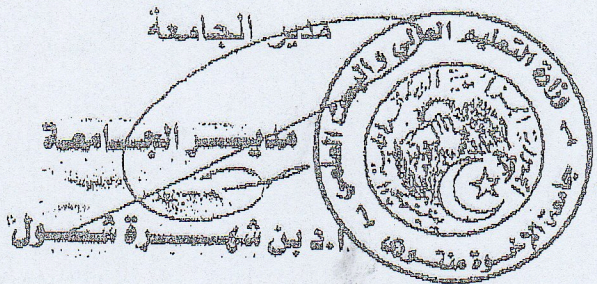 مدير الجامعة
مديـــر الجـــامعـة
ا.د بن شهـــرة شـــول
وزارة التعليم العالي و البحث العلمي
جامعة الإخوة منتوري 1